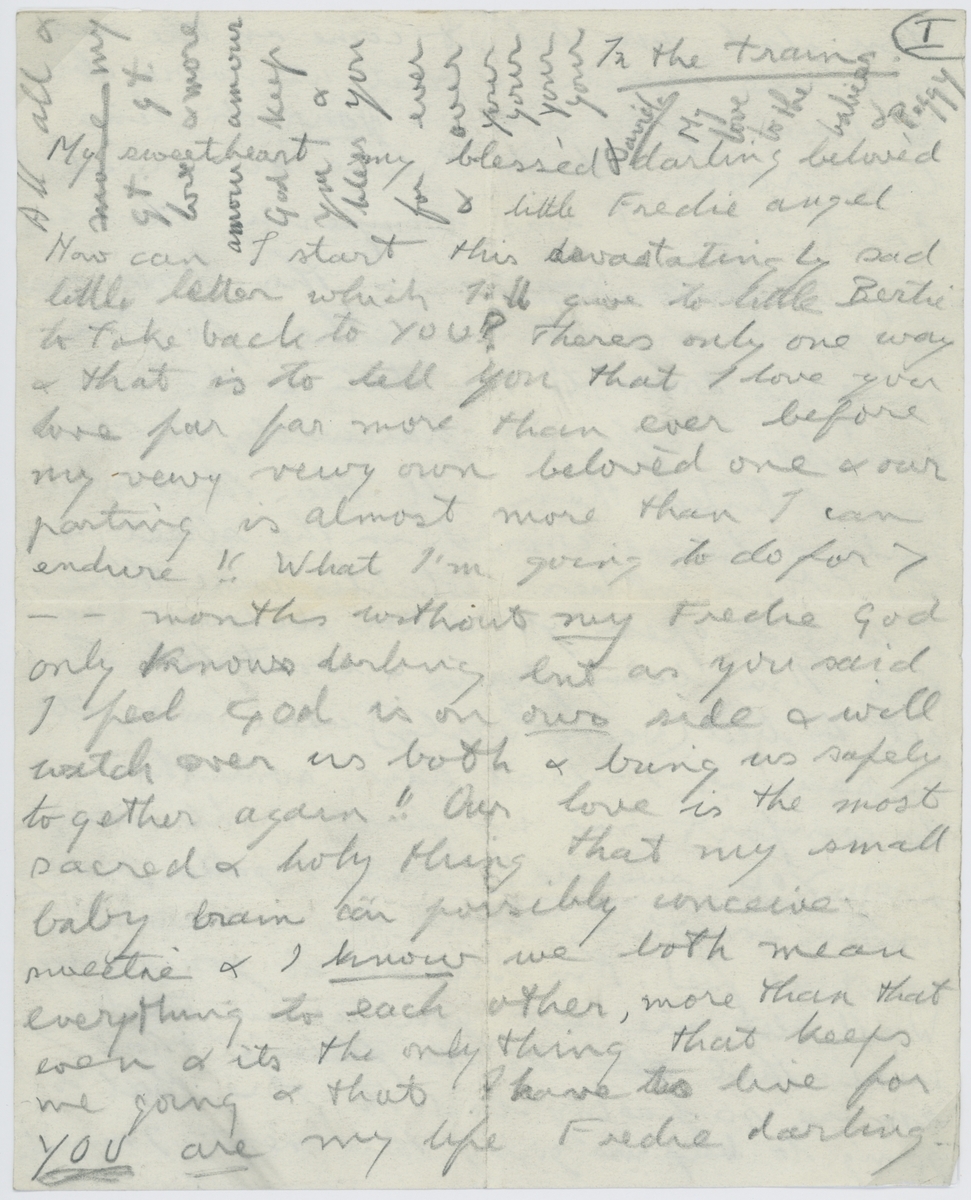 I
In the train.
My sweetheart my blessèd & darling beloved
& little Fredie angel
How can I start this devastatingly sad
little letter which I'll give to little Bertie
to take back to YOU? Theres only one way
& that is to tell you that I love you
love far far more than ever before
my vewy vewy own beloved one & our
parting is almost more than I can
endure!! What I'm going to do for 7
— — months without my Fredie God
only knows darling but as you said
I feel God is on ows side & will
watch over us both & bring us safely
together again!! Our love is the most
sacred & holy thing that my small
baby brain can possibly conceive
sweetie & I know we both mean
everything to each other, more than that
even & its the only thing that keeps
me going & that I have to live for
YOU are my life Fredie darling
All all &
my
gt. gt.
love & more
amour amour
God keep
you &
bless you
for ever
& ever
your
your
your
your
David.
My
love
to the
babies
& Peggy